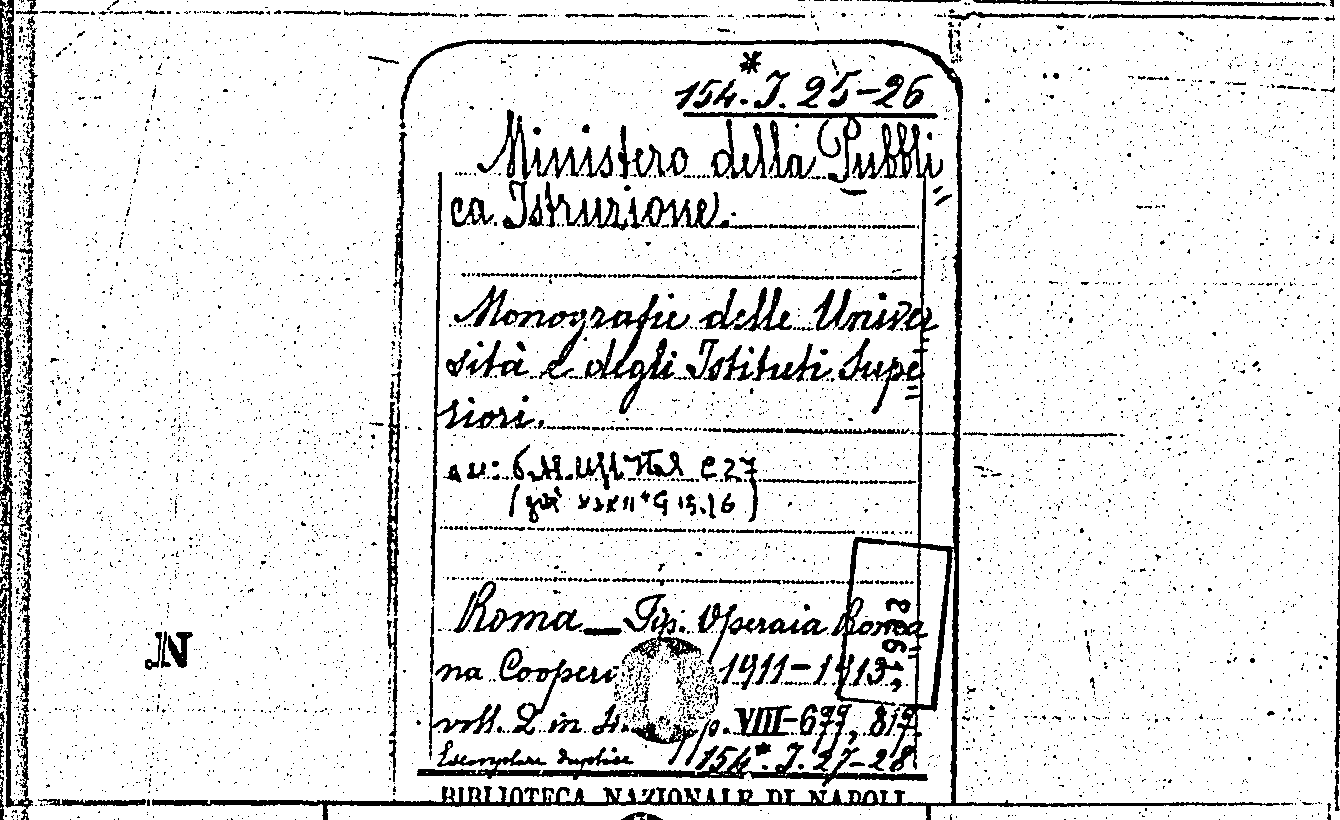 154.* I. 25-26
Ministero della Pubbli
ca Istruzione.
Monografie delle Univer
sità e degli Istituti Supe
riori.
C 27
(già XXXII* G 15.16)
Roma _ Tip. Operaia Roma
na Cooperi 1911-1913,
voll. 2 in p. VIII-677, 817.
Esemplare duplice 154*. I. 27-28
BIBLIOTECA NAZIONALE DI NAPOLI
N